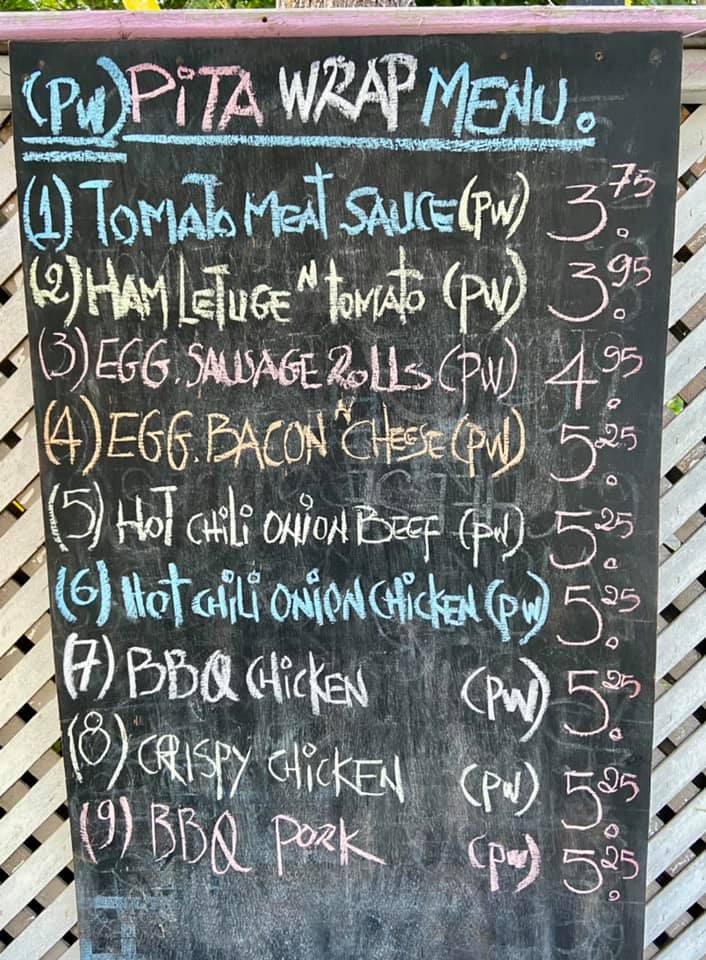 (PW) PiTA WRAP MENU.
(1) TOMATO MEAT SAUCE (PW) 3.75
(2) HAM LETUGE N TOMATO (PW) 3.95
(3) EGG. SAUSAGE ROLLS (PW) 4.95
(4) EGG. BACON N CHEESE (PW) 5.25
(5) HOT CHiLi ONiON BEEF (PW) 5.25
(6) HOT CHiLi ONiON CHiCKEN (PW) 5.25
(7) BBQ CHiCKEN (PW) 5.25
(8) CRISPY CHiCKEN (PW) 5.25
(9) BBQ PORK (PW) 5.25